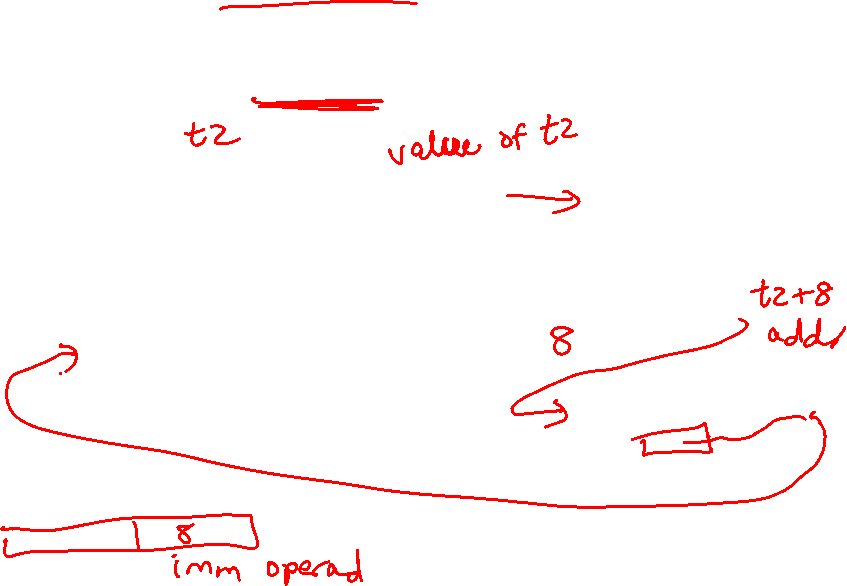 t2
value of t2
t2+8
addr
8
8
imm operad